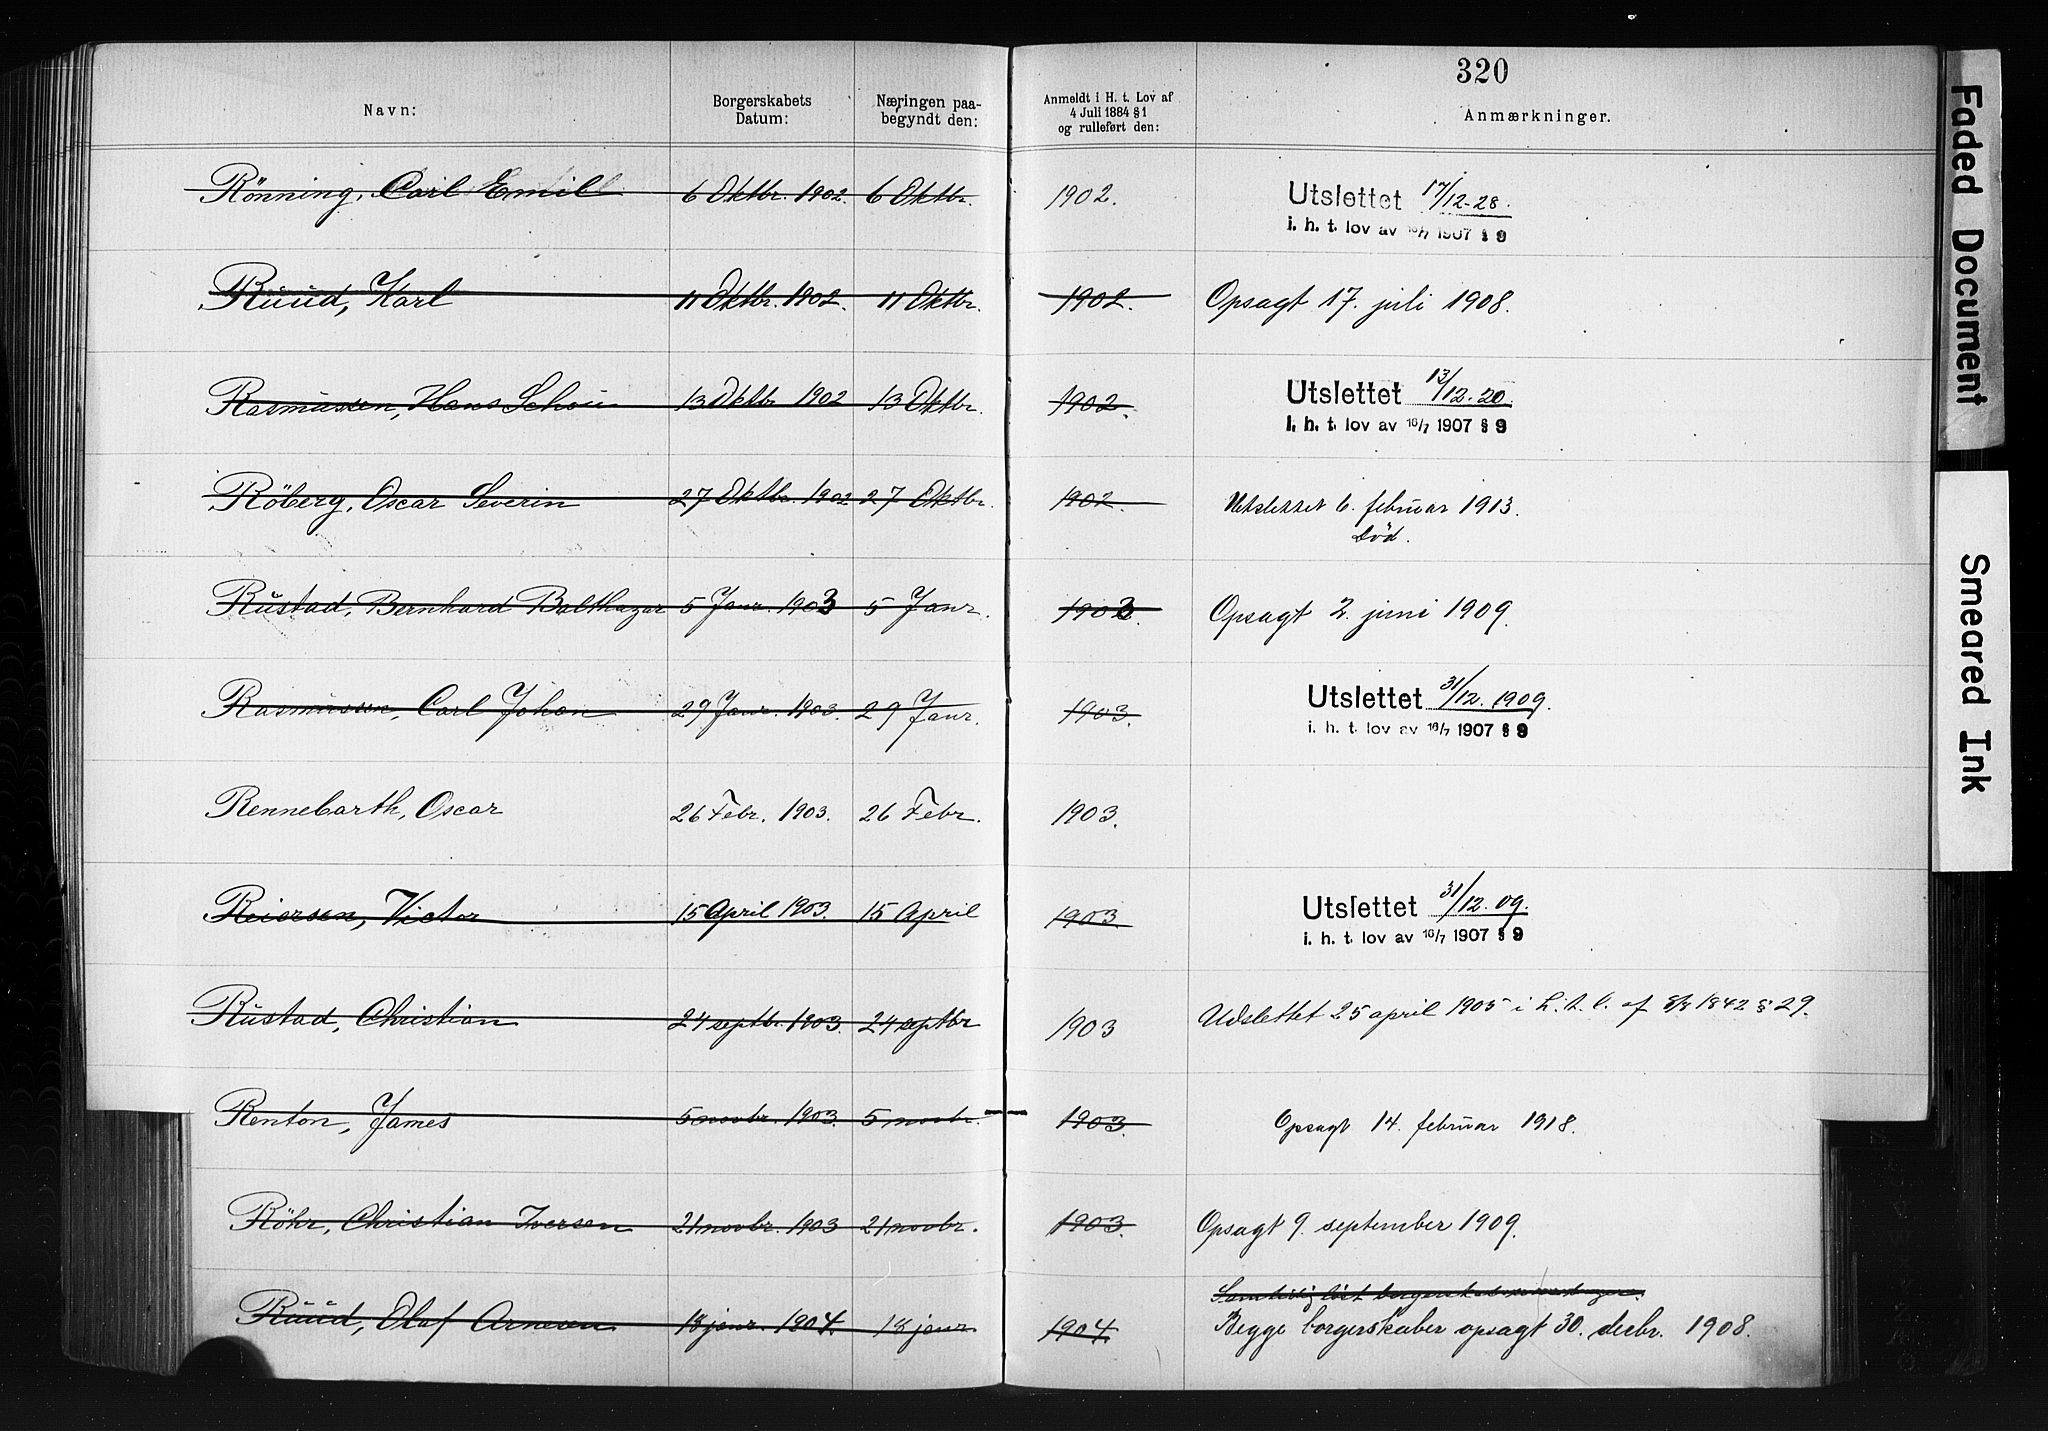 320
Navn:
Borgerskabets Datum:
Næringen paa-begyndt den:
Anmeldt i H. t. Lov af 4 Juli 1884 § 1 og rulleført den:
Anmærkninger.
Rönning, Carl Emil 6 Oktbr. 1902. 6 Oktbr. 1902. Utslettet 17/12-28.
i. h. t. lov av 16/7 1907 § 9
Ruud, Karl 11 Oktbr. 1902. 11 Oktbr. 1902. Opsagt 17. juli 1908.
Rasmussen, Hans Schou 13 Oktbr 1902 13 Oktbr. 1902. Utslettet 13/12-20.
i. h. t. lov av 16/7 1907 § 9
Röberg, Oscar Severin 27 Oktbr. 1902 27 Oktbr. 1902. Utslettet 6. februar 1913.
Död.
Rustad, Bernhard Balthazar 5 Janr. 1903 5 Janr. 1903. Opsagt 2. juni 1909.
Rasmussen, Carl Johan 29 Janr. 1903. 29 Janr. 1903. Utslettet 31/12. 1909.
i. h. t. lov av 16/7 1907 § 9
Rennebarth, Oscar 26 Febr. 1903. 26 Febr. 1903.
Reiersen, Victor 15 April 1903. 15 April 1903. Utslettet 31/12. 09.
i. h. t. lov av 16/7 1907 § 9
Rustad, Christian 24 septbr. 1903. 24 septbr 1903 Udslettet 25 april 1905 i h. t. l. af 8/8 1842 § 29.
Renton, James 5 novbr. 1903. 5 novbr. 1903. Opsagt 14. februar 1918.
Röhr, Christian Iversen 21 novbr. 1903 21 novbr. 1903. Opsagt 9. september 1909.
Samtidig löst borgerskab
Ruud, Olaf Arnesen 18 janr. 1904. 18 janr 1904 Begge borgerskaber opsagt 30. decbr. 1908.
Faded Document
Smeared Ink